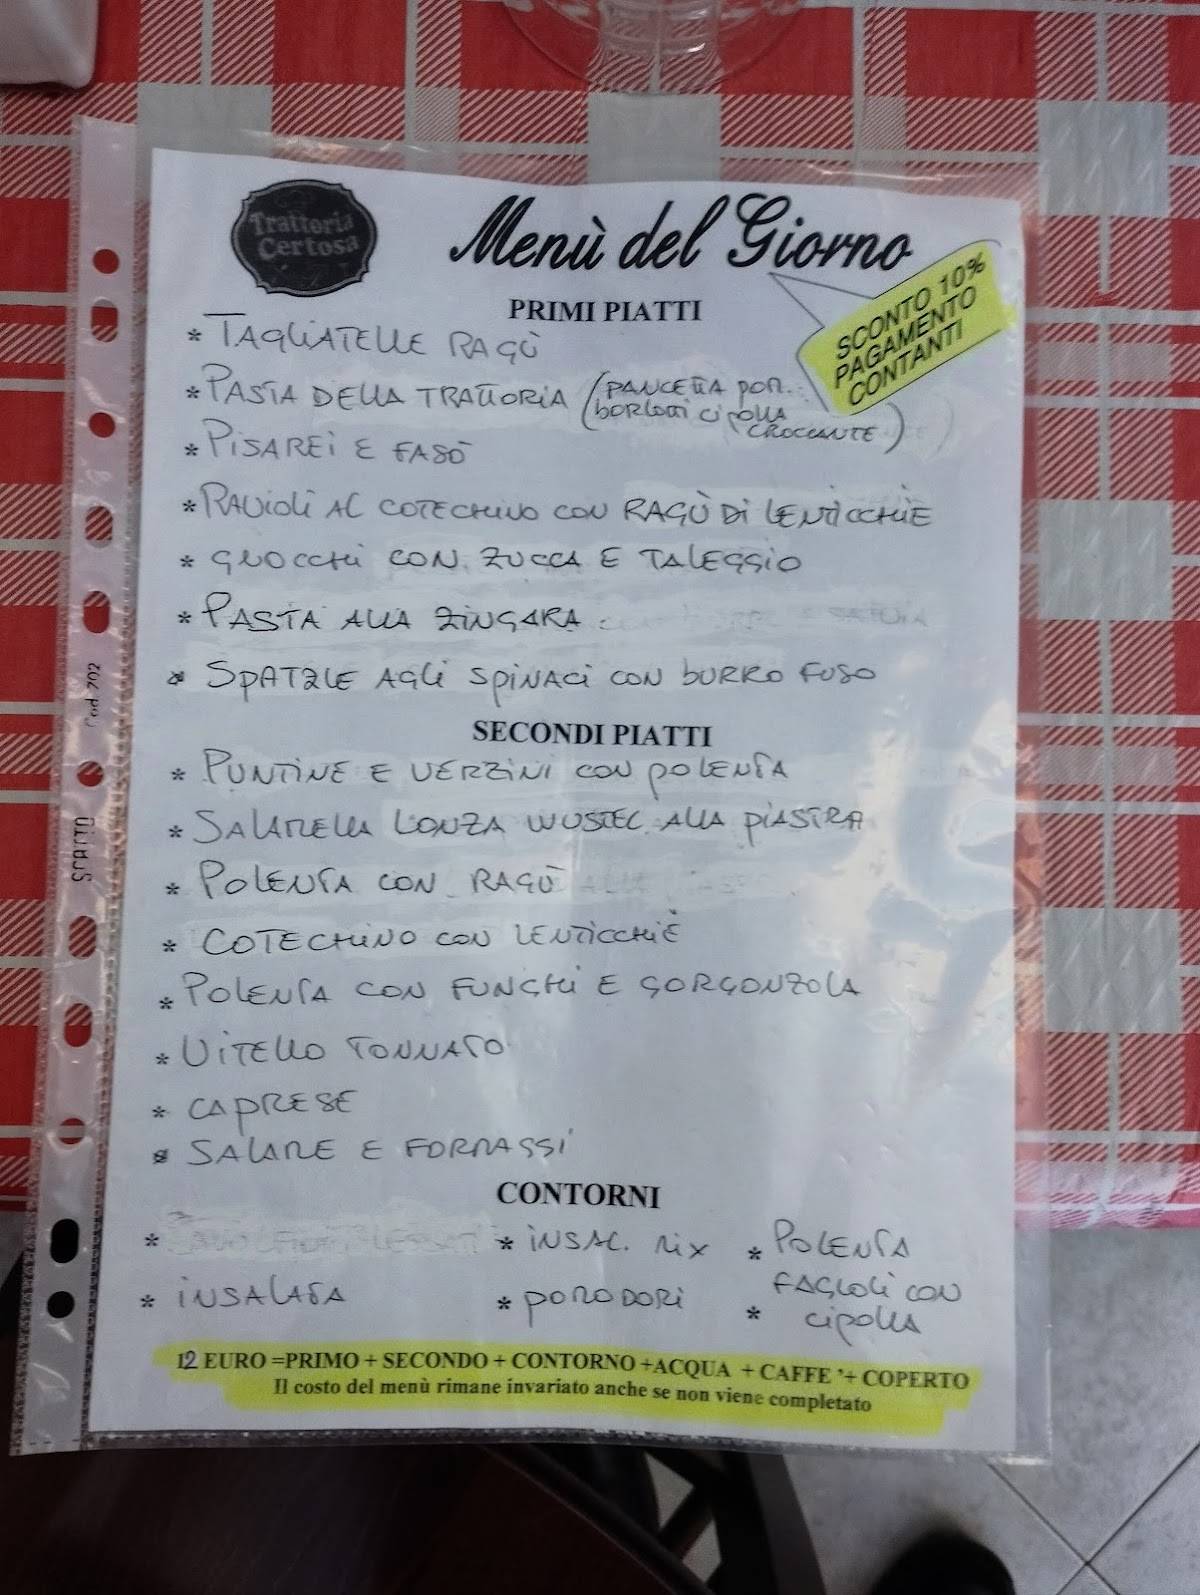 Trattoria
Certosa
Menù del Giorno
SCONTO 10%
PAGAMENTO
CONTANTI
PRIMI PIATTI
* TAGLIATELLE RAGÙ
* PASTA DELLA TRATTORIA (PANCETTA POM..
borlotti cipolla
CROCCANTE)
* PISAREI E FASÒ
* RAVIOLI AL COTECHINO CON RAGÙ DI LENTICCHIE
* GNOCCHI CON ZUCCA E TALEGGIO
* PASTA ALLA ZINGARA
* SPATZLE AGLI SPINACI CON BURRO FUSO
SECONDI PIATTI
* PUNTINE E VERZINI CON POLENTA
* SALAMELLA LONZA WUSTEL ALLA PIASTRA
* POLENTA CON RAGÙ
* COTECHINO CON LENTICCHIE
* POLENTA CON FUNGHI E GORGONZOLA
* VITELLO TONNATO
* CAPRESE
* SALAME E FORMAGGI
CONTORNI
* * INSAL. MIX * POLENTA
* INSALATA * POMODORI * FAGIOLI CON
cipolla
12 EURO =PRIMO + SECONDO + CONTORNO +ACQUA + CAFFE '+ COPERTO
Il costo del menù rimane invariato anche se non viene completato
SCATTO Cod. 702